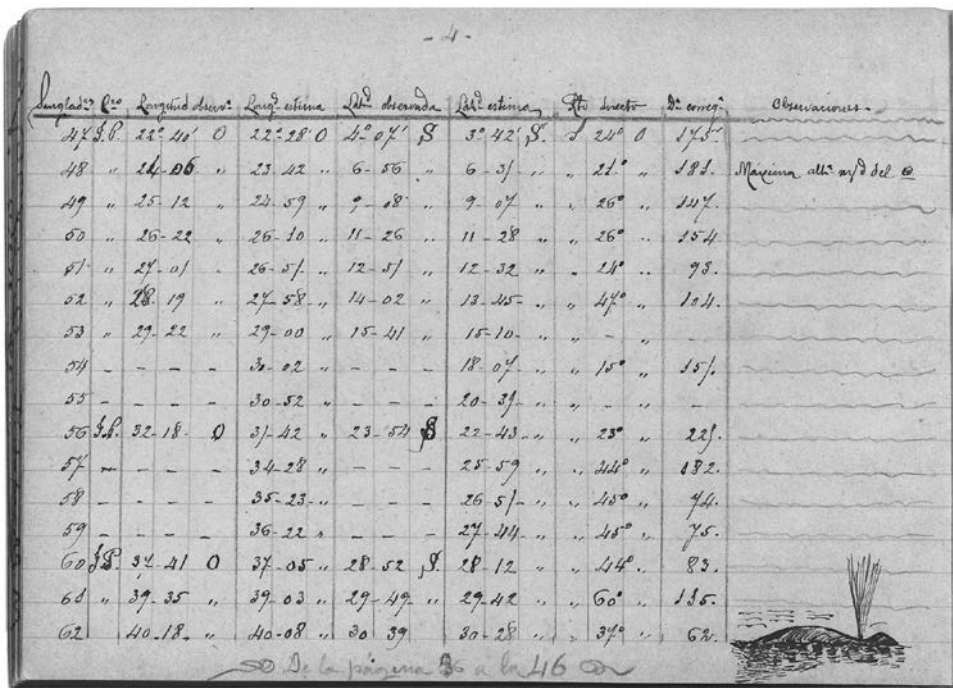 - 4 -
Singlads Cro Longitud observa Longd estima Latd observada Latd estima Rto directo Da correga Observaciones.
47 J.P. 22º 40' O 22º 28 O 4º 07' S 3º 42' S. S 24º O 175'
48 " 24-06 " 23 42 " 6-56 " 6-31 " " 21º " 181. Máxima alta m/d del
49 " 25-12 " 24-59 " 9-08 " 9-07 " " 26º " 147.
50 " 26-22 " 26-10 " 11-26 " 11-28 " " 26º " 154
51 " 27-01 " 26-51 " 12-51 " 12-32 " " 24º " 93.
52 " 28-19 " 27-58 " 14-02 " 13-45 " " 47º " 104.
53 " 29-22 " 29-00 " 15-41 " 15-10 " " - " -
54 - - - - 30-02 " - - - 18-07 " " 15º " 151.
55 - - - - 30-52 " - - - 20-31 " " - " -
56 J.P. 32-18 O 31-42 " 23-54 S 22-43 " " 23º " 221.
57 - - - - 34-28 " - - - 25-59 " " 44º " 182.
58 - - - - 35-23 " - - - 26-51 " " 45º " 74.
59 - - - - 36-22 " - - - 27-44 " " 45º " 75.
60 J.P. 37-41 O 37-05 " 28-52 S. 28-12 " " 44º " 83.
61 " 39-35 " 39-03 " 29-49 " 29-42 " " 60º " 115.
62 40-18 " 40-08 " 30 39 30-28 " " 37º " 62.
De la página 36 a la 46